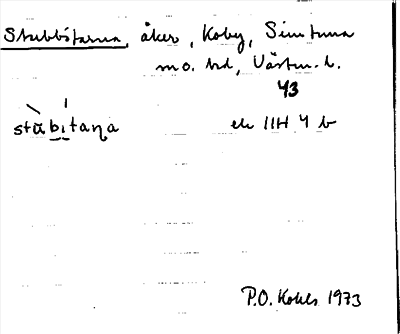 Stubbötarna, åker, Koby, Simtuna
sn o. hd, Västm. l.
43
stùbı̣taṇa ek 11H 4 b
P.O. Kohls 1973